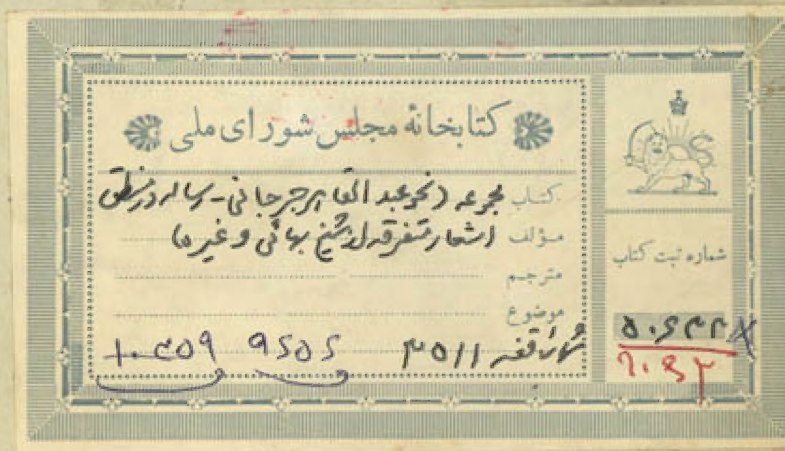 کتابخانهٔ مجلس شورای ملی
کتاب مجموعه (نحو عبد القاهر جرجانی - رساله در منطق
مؤلف اشعار متفرقه از شیخ بهائی و غیره)
مترجم
موضوع
شماره قفسه ۳۵۱۱
شماره ثبت کتاب